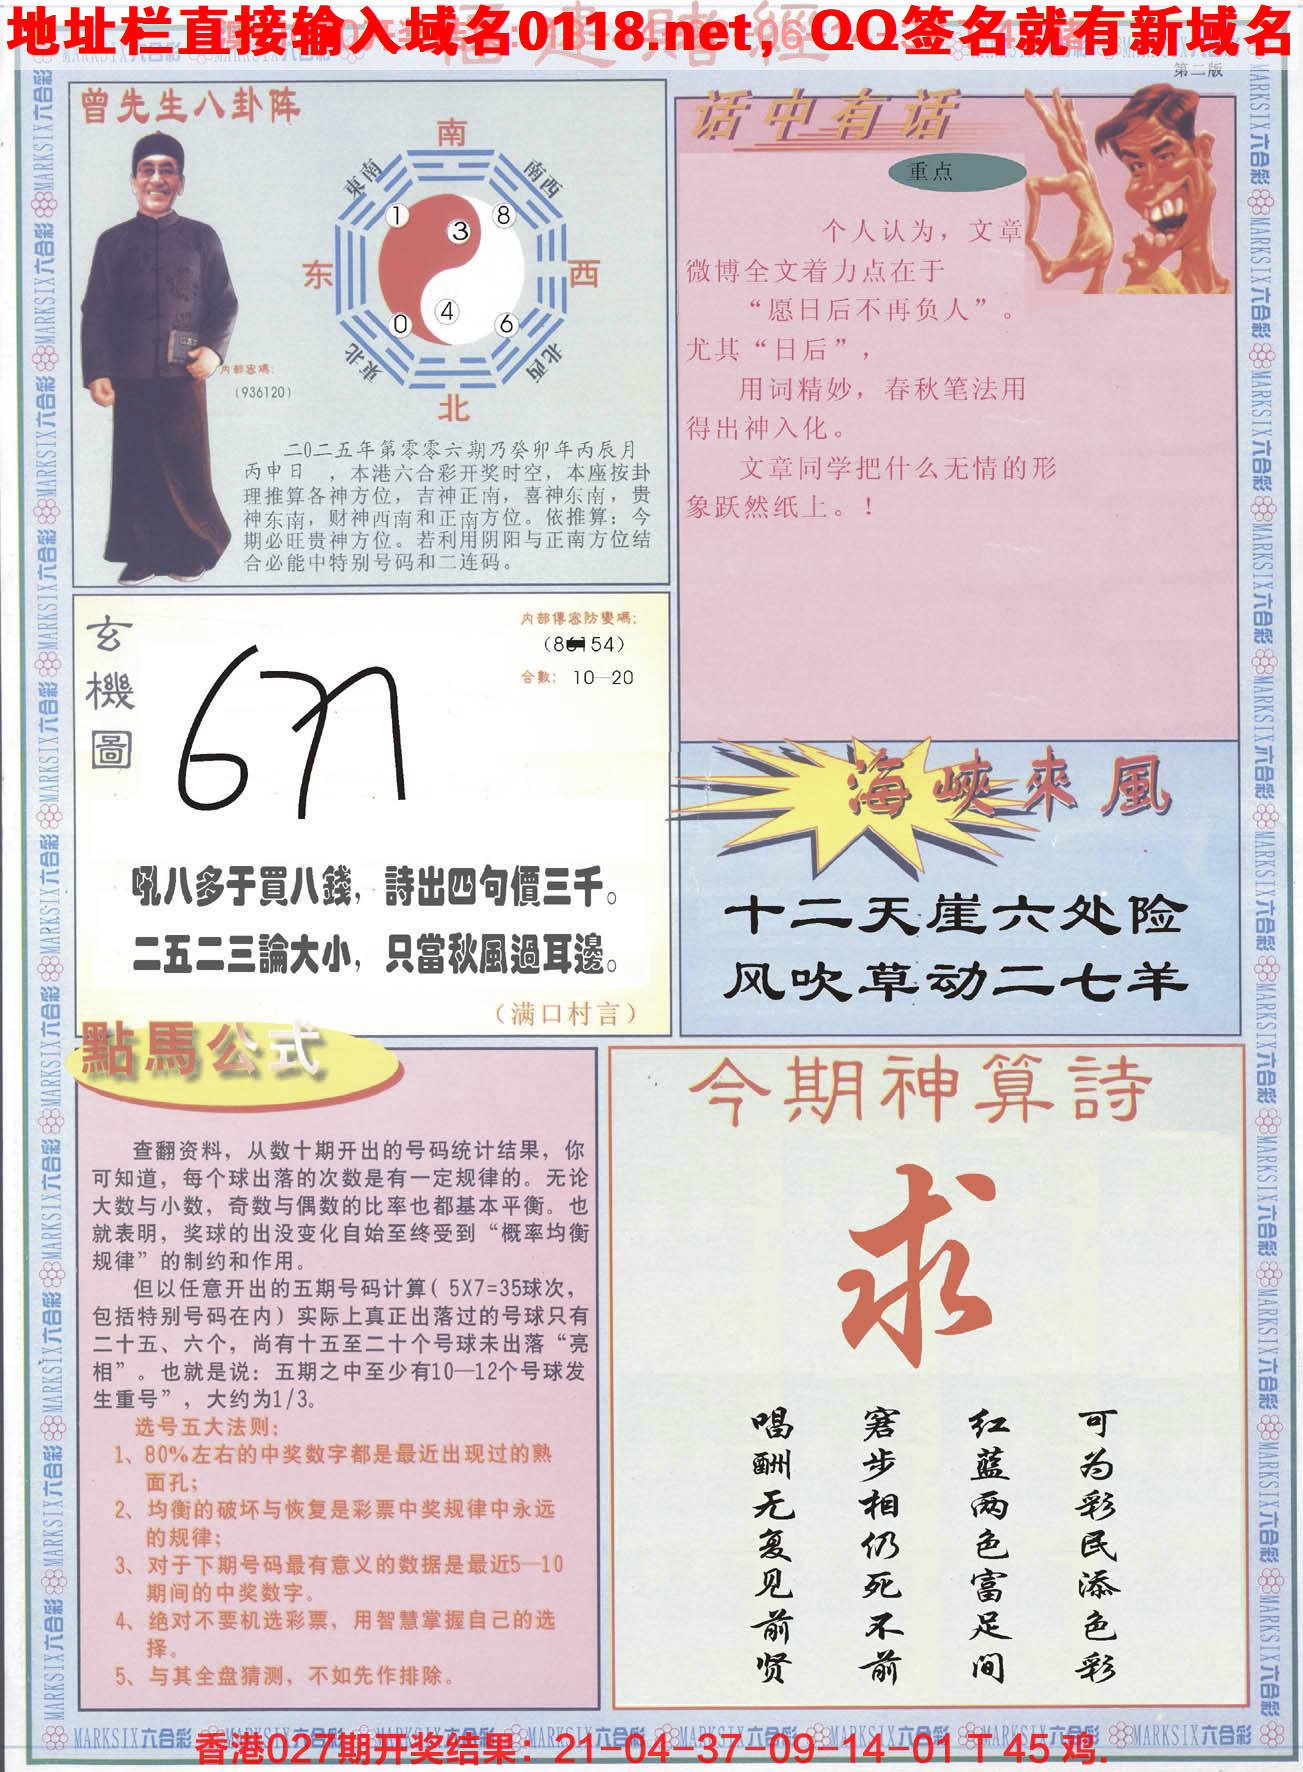 地址栏直接输入域名0118.net，QQ签名就有新域名
福建赌經
第二版
曾先生八卦阵
南
東南
南西
1
3
8
东
西
0
4
6
東北
北西
北
内部密碼：
（936120）
二0二五年第零零六期乃癸卯年丙辰月
丙申日 ，本港六合彩开奖时空，本座按卦
理推算各神方位，吉神正南，喜神东南，贵
神东南，财神西南和正南方位。依推算：今
期必旺贵神方位。若利用阴阳与正南方位结
合必能中特别号码和二连码。
话中有话
重点
个人认为，文章
微博全文着力点在于
“愿日后不再负人”。
尤其“日后”，
用词精妙，春秋笔法用
得出神入化。
文章同学把什么无情的形
象跃然纸上。！
玄機圖
内部傳密防變碼：
合數： 10—20
吼八多于買八錢，詩出四句價三千。
二五二三論大小，只當秋風過耳邊。
（满口村言）
海峽來風
十二天崖六处险
风吹草动二七羊
點馬公式
查翻资料，从数十期开出的号码统计结果，你
可知道，每个球出落的次数是有一定规律的。无论
大数与小数，奇数与偶数的比率也都基本平衡。也
就表明，奖球的出没变化自始至终受到“概率均衡
规律”的制约和作用。
但以任意开出的五期号码计算（5X7=35球次，
包括特别号码在内）实际上真正出落过的号球只有
二十五、六个，尚有十五至二十个号球未出落“亮
相”。也就是说：五期之中至少有10—12个号球发
生重号”，大约为1/3。
选号五大法则：
1、80%左右的中奖数字都是最近出现过的熟
面孔；
2、均衡的破坏与恢复是彩票中奖规律中永远
的规律；
3、对于下期号码最有意义的数据是最近5—10
期间的中奖数字。
4、绝对不要机选彩票，用智慧掌握自己的选
择。
5、与其全盘猜测，不如先作排除。
今期神算詩
求
可为彩民添色彩
红蓝两色富足间
窘步相仍死不前
唱酬无复见前贤
MARKSIX六合彩
香港027期开奖结果：21-04-37-09-14-01 T 45 鸡.